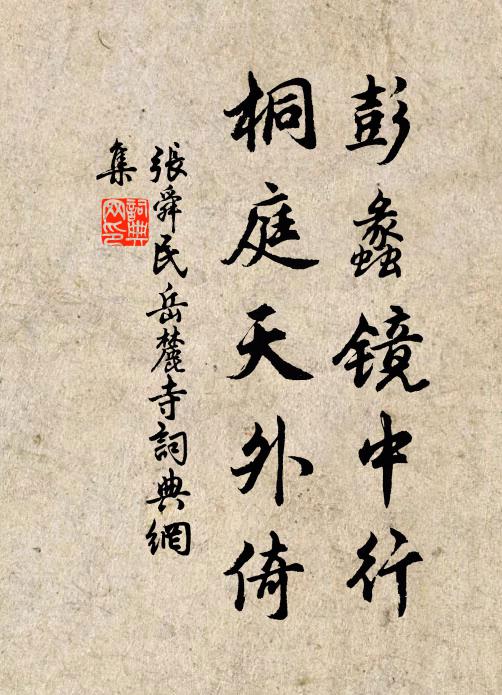 彭蠡镜中行
桐庭天外倚
張舜民岳麓寺詞典網
集
詞典
网印